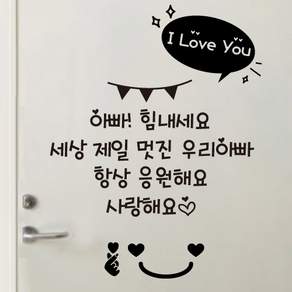 I Love You
아빠! 힘내세요
세상 제일 멋진 우리아빠
항상 응원해요
사랑해요♡